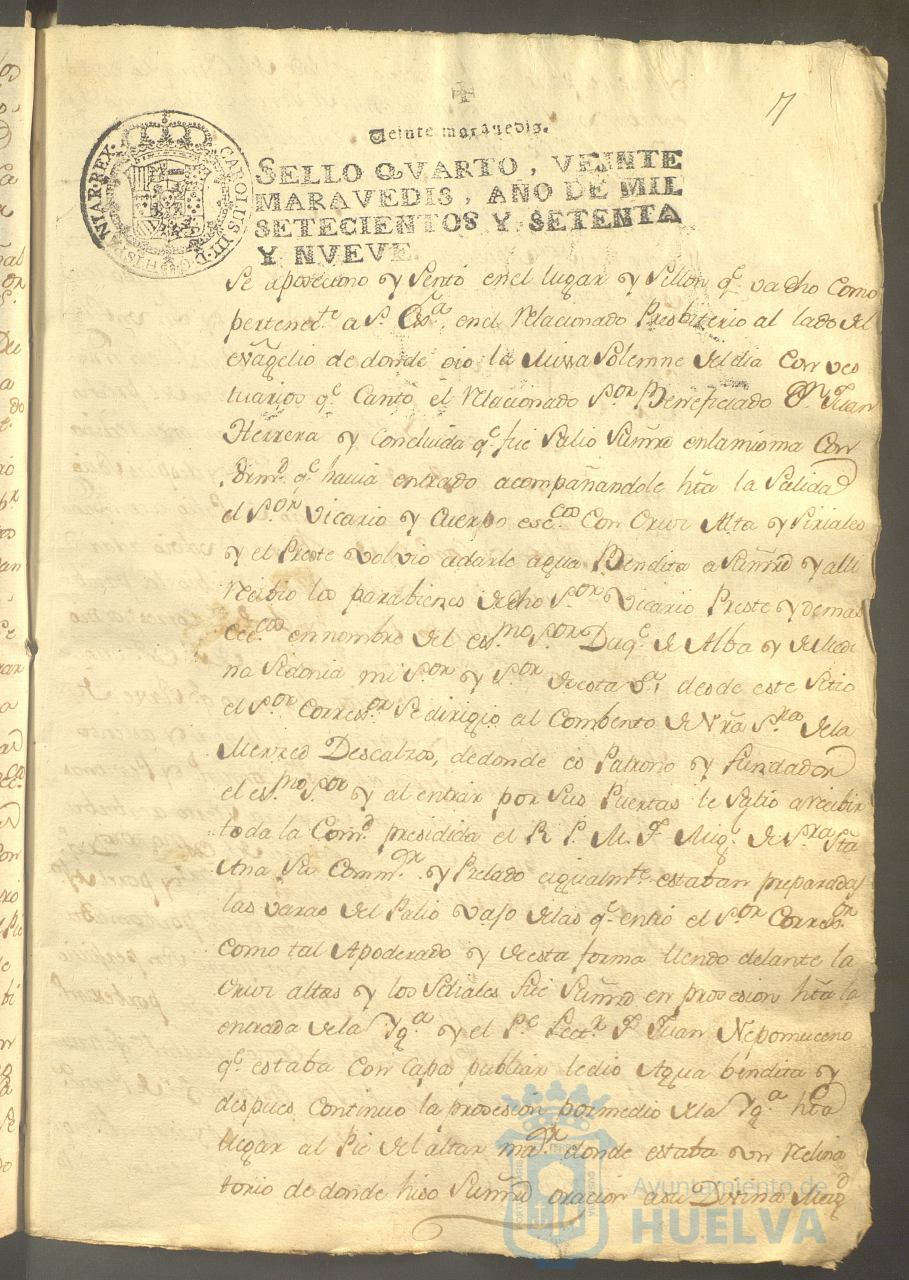 17
Veinte maravedis.
CAROLUS III D. G. HISPANIAR. REX.
SELLO QVARTO, VEINTE
MARAVEDIS, AÑO DE MIL
SETECIENTOS Y SETENTA
Y NVEVE.
Se aposeciono y Sentó en el lugar y Sillon q.e va dho como
pertenec.te a S. Exª. en el Relacionado Presbiterio al lado del
evãgelio de donde oio la Missa Solemne del dia Con ves
tuarios q.e Cantó el Relacionado S.or Beneficiado Dn Juan
Herrera y Concluida q.e fue Salio Su mrd en la misma Con
q.e havia entrado acompañandole hta la Salida
el S.or Vicario y Cuerpo ecc.co Con Cruz Alta y Siriales
y el Preste volvio a darle agua Bendita a Su mrd y alli
recibio los parabienes de dho S.or Vicario Preste y demas
ecc.cos en nombre del ex.mo S.or Duq.e de Alba y de Medi
na Sidonia mi S.or y S.or de esta Vª, desde este Sitio
el S.or Correg.or Se dirigio al Combento de Nrã S.ra de la
Merzed Descalzos, de donde es Patrono y Fundador
el ex.mo S.or y al entrar por Sus Puertas le Salio a recibir
toda la Com.d presidida el R. P. M. F. Mig.l de S.ra Sta
Ana Su Comm.or y Prelado e igualm.te estaban preparadas
las varas del Palio vajo de las q.e entró el S.or Correg.or
Como tal Apoderado y de esta forma llendo delante la
Cruz altas y los Siriales fue Su mrd en prosesion hta la
entrada de la Yg.ª y el P.e Lect.r F. Juan Nepomuceno
q.e estaba Con Capa publiar le dio Agua bendita y
despues Continuo la prosesion por medio de la Yg.ª hta
llegar al Pie del altar ma.or donde estaba un Reclina
torio de donde hiso Su mrd oracion a su Divina Mag.d
Ayuntamiento de
HUELVA